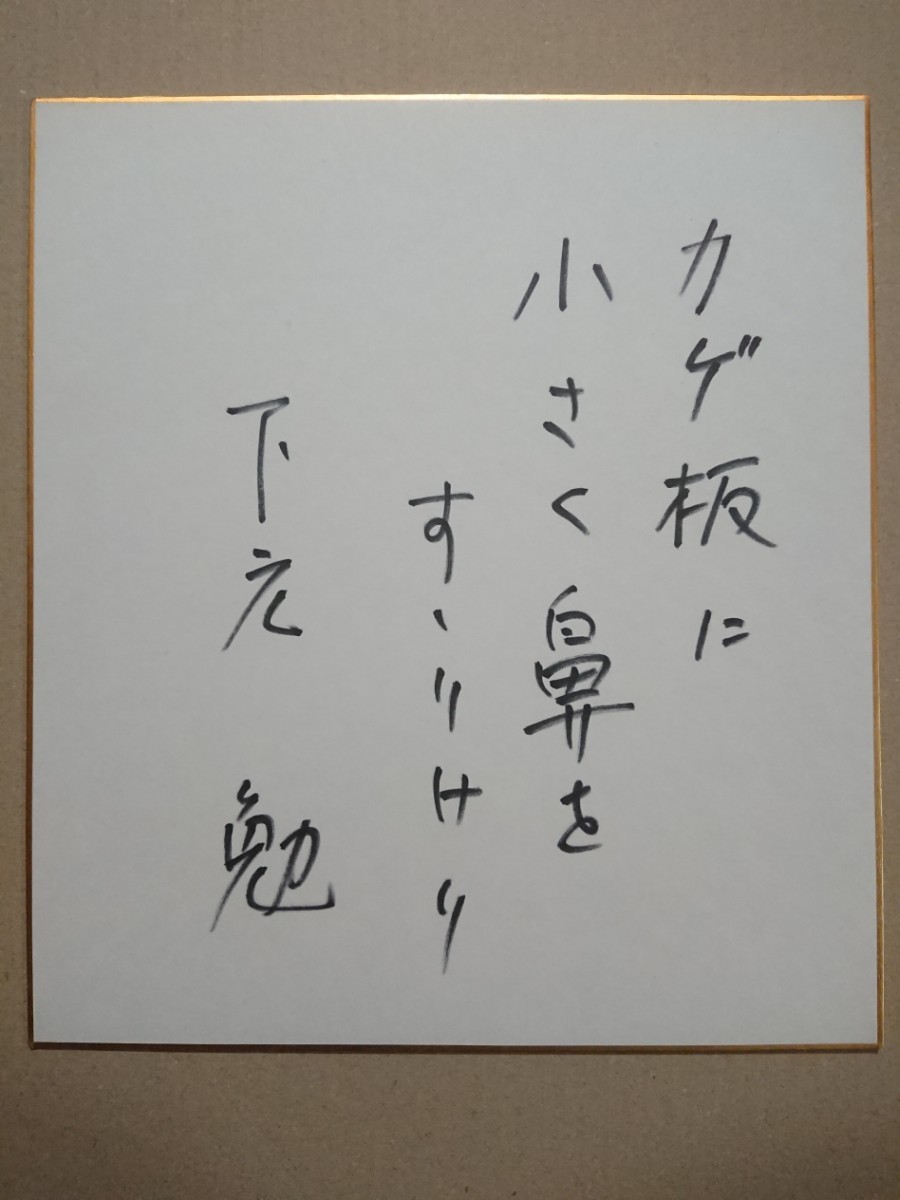 カゲ板に
小さく鼻を
すゝりけり
下元 勉